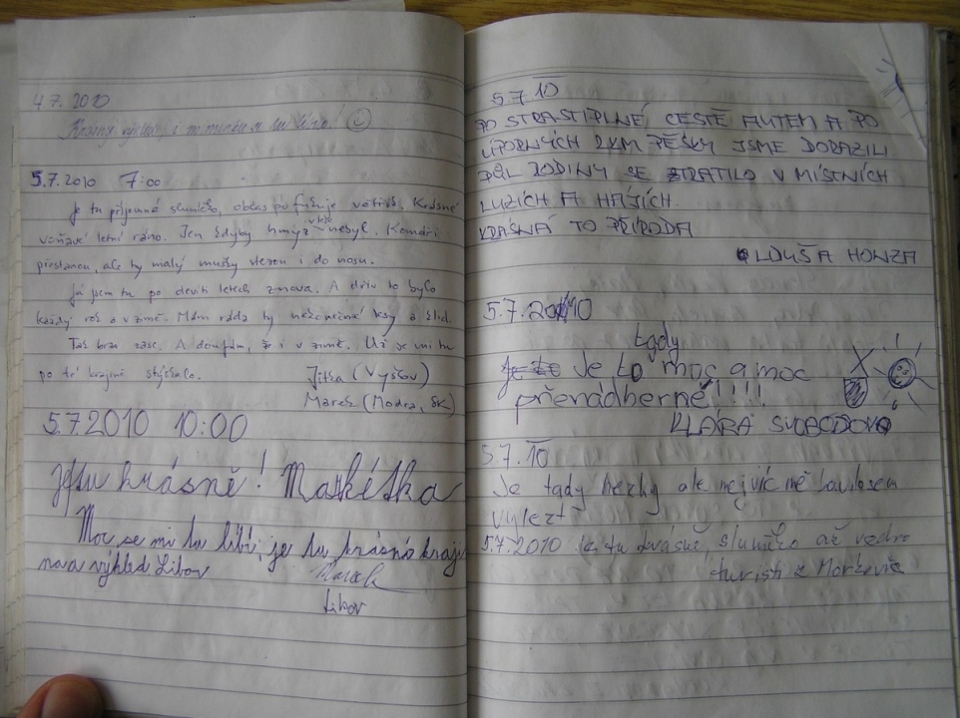 4.7. 2010
Krásný výhled, i miminku se tu líbí.
5.7.2010 7:00
Je tu příjemné sluníčko, občas pofukuje větřík. Krásné
voňavé letní ráno. Jen kdyby hmyz vůbec nebyl. Komáři
přestanou, ale ty malý mušky vlezou i do nosu.
Já jsem tu po devíti letech znova. A dřív to bylo
každý rok a v zimě. Mám ráda ty nekonečné lesy a klid.
Tak brzo zase. A doufám, že i v zimě. Už se mi tu
po té krajině stýskalo.
Jitka (Vyškov)
Marek (Modra, SK)
5.7.2010 10:00
Je tu krásně! Markétka
Moc se mi tu líbí, je tu krásná kraji
na a výhled Libor
Marek
Libor
5.7.10
PO STRASTIPLNÉ CESTĚ AUTEM A PO
ÚPORNÝCH 2KM PĚŠKY JSME DORAZILI
PŮL RODINY SE ZTRATILO V MÍSTNÍCH
LUZÍCH A HÁJÍCH.
KRÁSNÁ TO PŘÍRODA
LOUŠA HONZA
5.7.2010
tady
Je to moc a moc
přenádherné!!!!
KLÁRA SVOBODOVÁ
5.7.10
Je tady hezky ale nejvíc mě bavilo sem
vylezt
5.7.2010 je tu krásně, sluníčko až vedro
turisti z